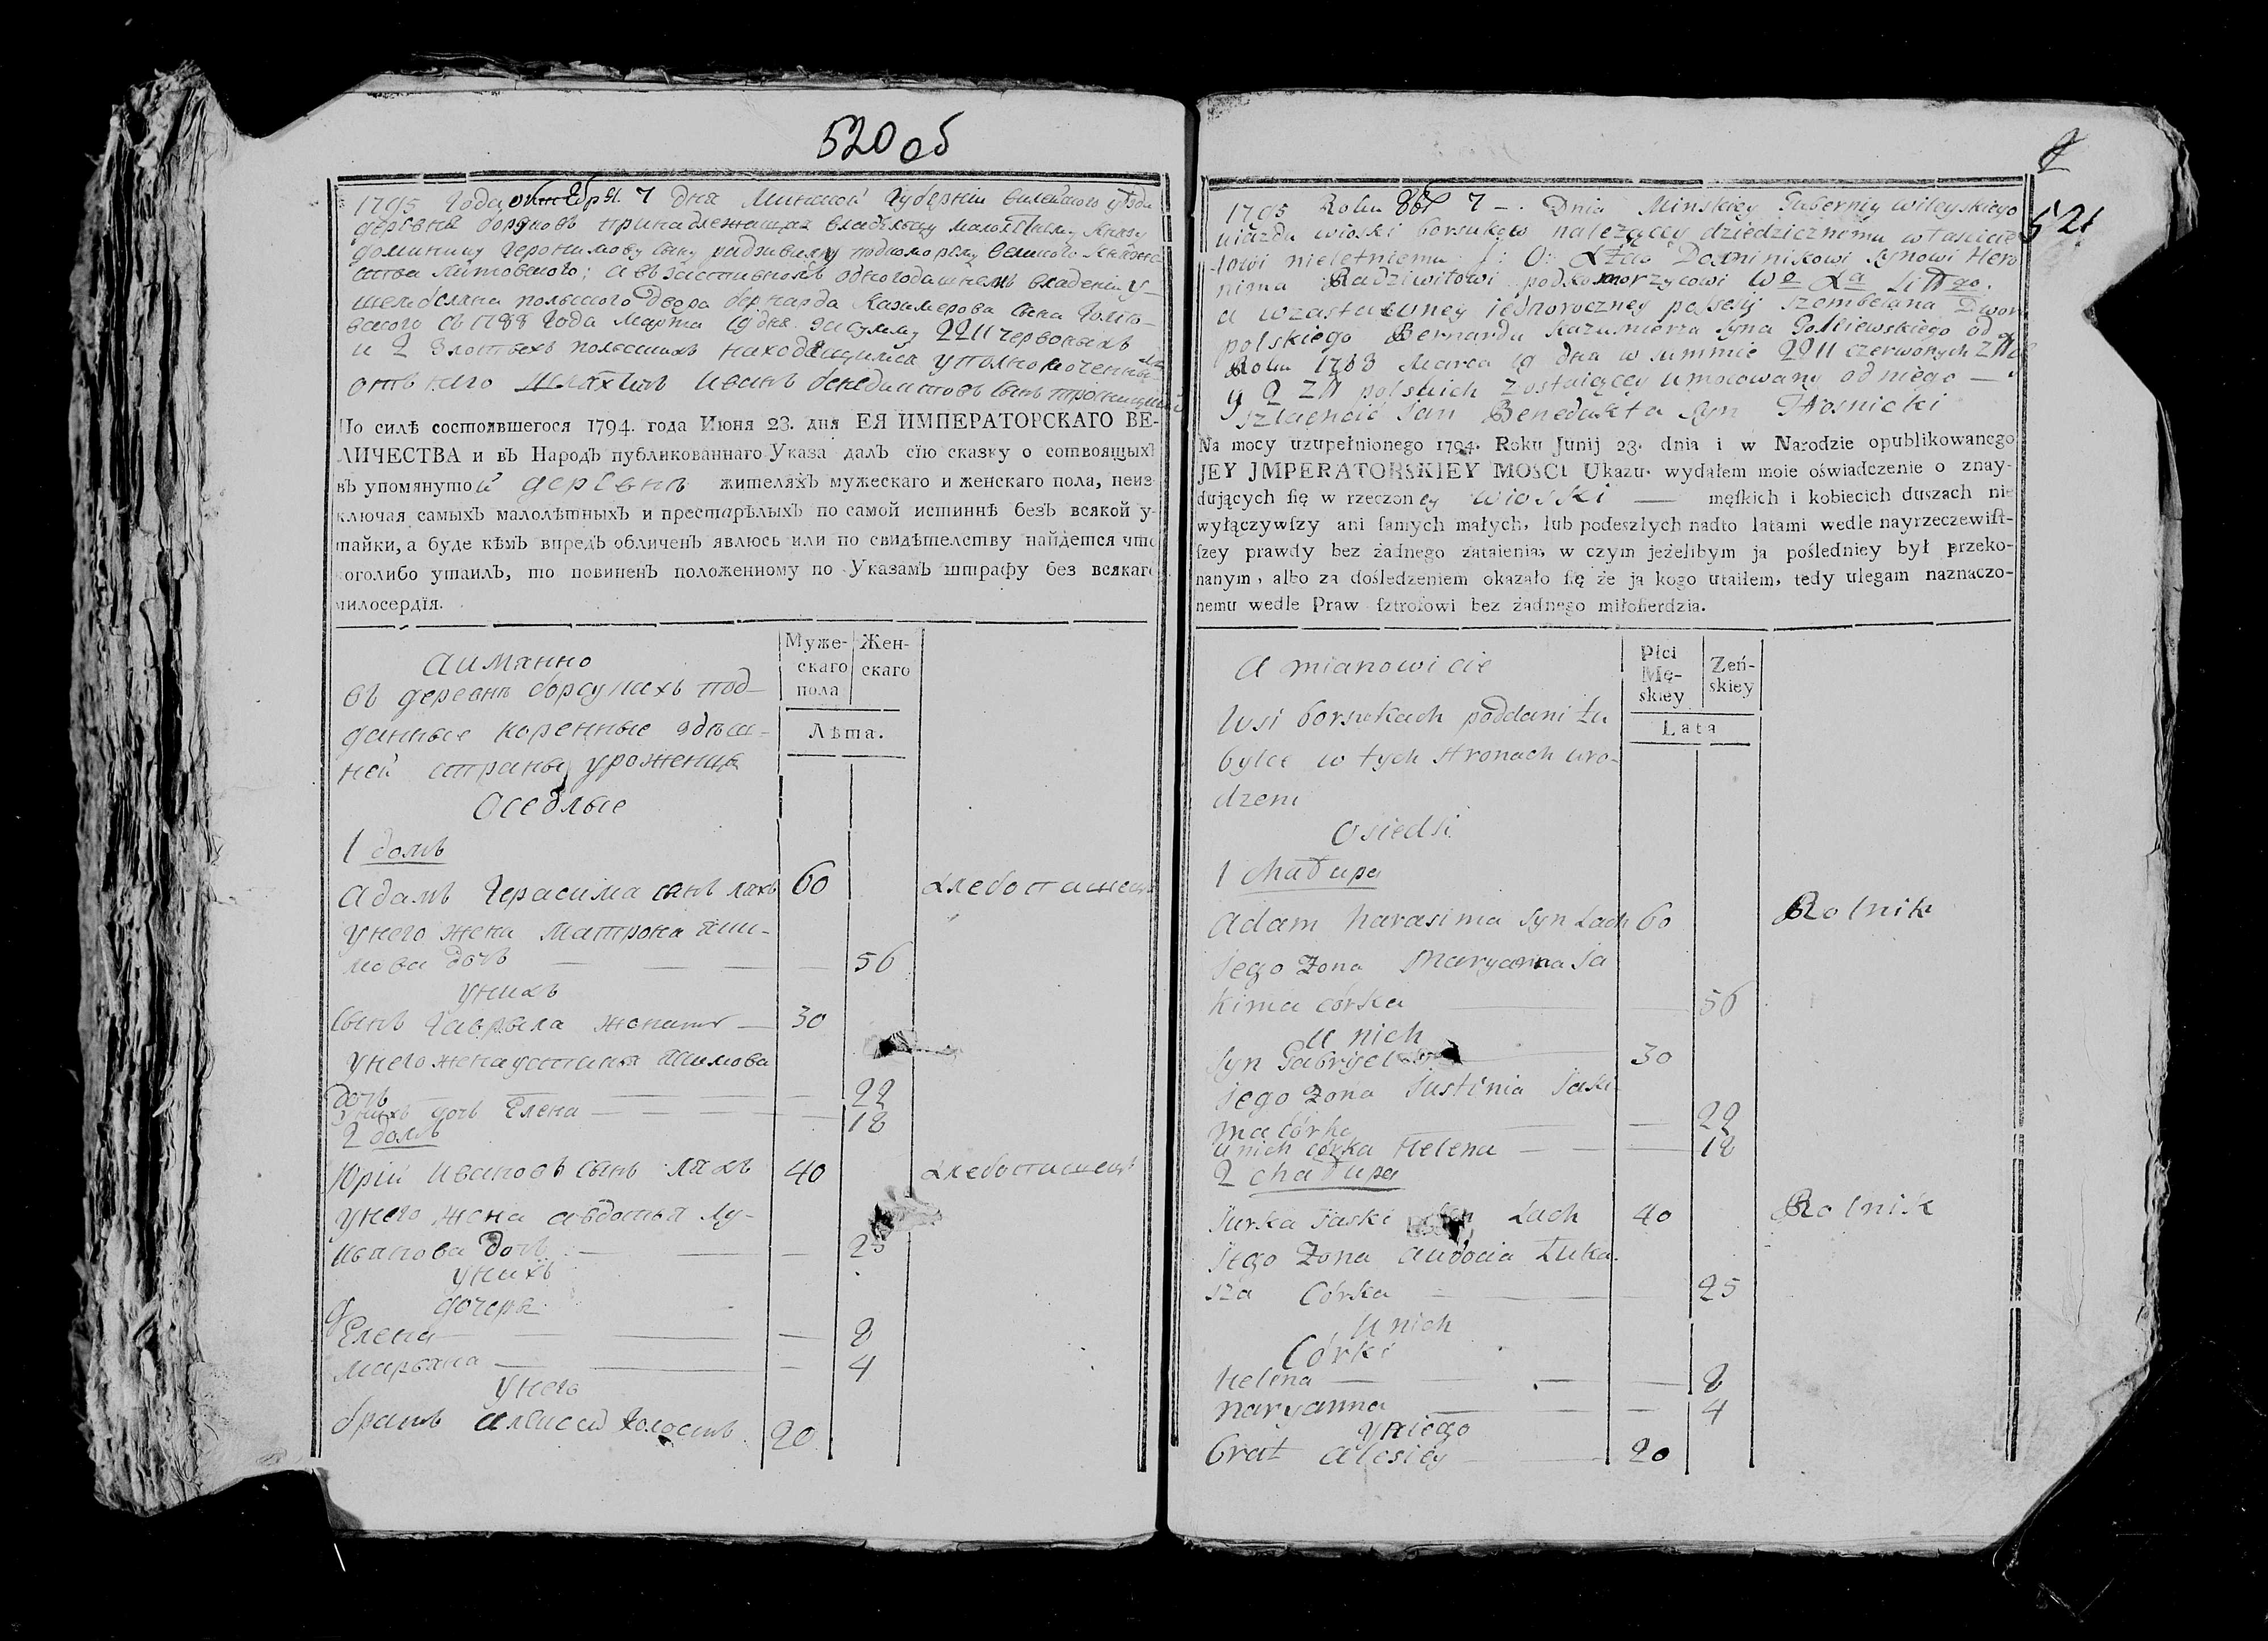 520 об
1795 Года октебря 7 дня Минской Губерніи вилейского уѣзда
деревни борсуковъ принадлежащая владѣльцу малолѣтнему князю
доминику Геронимову сыну радзивилу подкоморому великого княже
ства литовского; а въ заставномъ одногодишнемъ владеніи у
шембеляна польского двора бернарда казимерова сына
вского съ 1788 Года Марта 19 дня за сумму 2211 червоныхъ
и 2 злотыхъ польскихъ находящимся уполномоченный
отъ него шляхтичъ иванъ бенедиктовъ сынъ
По силѣ состоявшегося 1794. года Июня 23. дня ЕЯ ИМПЕРАТОРСКАГО ВЕ-
ЛИЧЕСТВА и въ Народъ публикованнаго Указа далъ сїю сказку о сотвоящыхъ
въ упомянутой деревнѣ жителяхъ мужескаго и женскаго пола, неиз
ключая самыхъ малолѣтныхъ и престарѣлыхъ по самой истиннѣ безъ всякой у-
тайки, а буде кѣмъ впредь обличенъ явлюсь или по свидѣтелству найдется что
коголибо утаилъ, то повиненъ положенному по Указамъ штрафу без всякаго
милосердїя.
Муже-
скаго
пола
Жен-
скаго
Лѣта.
аимянно
въ деревнѣ борсукахъ под-
данные коренные здѣш-
ней страны уроженцы
Оседлые
1 домъ
адамъ Герасима сынъ лахъ 60 хлебопашецъ
унего жена матрона яки-
мова дочь 56
унихъ
сынъ Гаврыла женатъ 30
унего жена устинья якимова
дочь 22
унихъ дочь Елена 18
2 домъ
Юрій ивановъ сынъ лахъ 40 хлебопашецъ
унего жена авдотья лу-
кьянова дочь 25
унихъ
дочери
Елена 8
марьяна 4
унего
братъ алексей холостъ 20
2
521
1795 Roku 8br 7 Dnia Minskiey Gubernij wileyskiego
uiazdu wioski borsukow należącey dziedzicznemu właścicie
lowi nieletniemu J: O: Xżęc Dominikowi synowi Hero
nima Radziwiłowi podkomorzycowi Wo Xa Littgo.
a wzastawney iednoroczney possesij szembelana Dwor
polskiego Bernarda Kazimierza syna od
Roku 1788 Marca 19 dna w summie 2211 czerwonych
y 2 zlł polskich zostaiącey umocowany od niego
szlachcic Jan Benedykta syn
Na mocy uzupełnionego 1794. Roku Junij 23. dnia i w Narodzie opublikowanego
JEY JMPERATORSKIEY MOSCI Ukazu. wydałem moie oświadczenie o znay-
dujących ſię w rzeczoney wioski męſkich i kobiecich duszach nie
wyłączywſzy ani ſamych małych, lub podeszłych nadto latami wedle nayrzeczewiſt-
ſzey prawdy bez żadnego zataienia, w czym jeżelibym ja pośledniey był przeko-
nanym, albo za dośledzeniem okazało ſię że ja kogo utaiłem, tedy ulegam naznaczo-
nemu wedle Praw ſztrofowi bez żadnego miłoſierdzia.
Płci
Mę-
skiey
Zeń-
skiey
Lata
a mianowicie
Wsi borsukach poddani tu
bylce w tych stronach uro-
dzeni
Osiedli
1 chałupa
Adam harasima syn Lach 60 Rolnik
Jego Żona Maryanna Ja
kima córka 56
U nich
syn Gabryel 30
Jego Żona Justinia Jaki
ma córka 22
U nich córka Helena 18
2 chałupa
Jurka Jaski syn Lach 40 Rolnik
Jego Żona audocia Łuka
sza Córka 25
U nich
Córki
Helena 8
Maryanna 4
U niego
brat alesiey 20